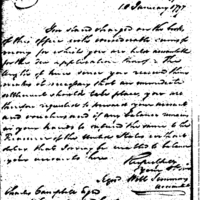 10 January 1797
You stand charged on the books
of this office with considerable sums of
money for which you are held accountable
for the due application thereof. The
length of time since you received these
makes it necessary that an immediate
settlement should take place, you are
therefore requested to forward your account
and vouchers and if any balance remain
in your hands to repay the same to the
Treasurer of the United States in that
order that I may be enabled to balance
your accounts here
Respectfully
Sign'd Will Simmons
accountant
Charles Campbell Esqr